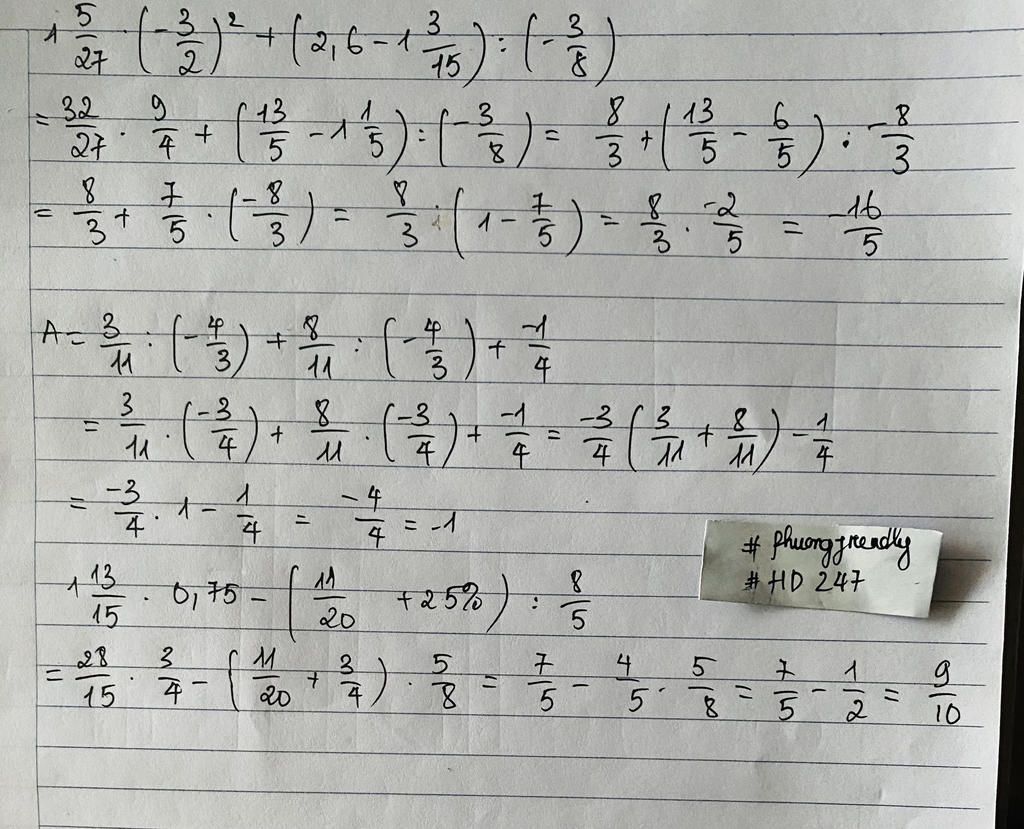 1 5/27 · (-3/2)² + (2,6 - 1 3/15) : (-3/8)
= 32/27 · 9/4 + (13/5 - 1 1/5) : (-3/8) = 8/3 + (13/5 - 6/5) · -8/3
= 8/3 + 7/5 · (-8/3) = 8/3 · (1 - 7/5) = 8/3 · -2/5 = -16/5
A = 3/11 : (-4/3) + 8/11 : (-4/3) + -1/4
= 3/11 · (-3/4) + 8/11 · (-3/4) + -1/4 = -3/4 (3/11 + 8/11) - 1/4
= -3/4 · 1 - 1/4 = -4/4 = -1
# phuongfriendly
# HD 247
1 13/15 · 0,75 - (11/20 + 25%) : 8/5
= 28/15 · 3/4 - (11/20 + 3/4) · 5/8 = 7/5 - 4/5 · 5/8 = 7/5 - 1/2 = 9/10